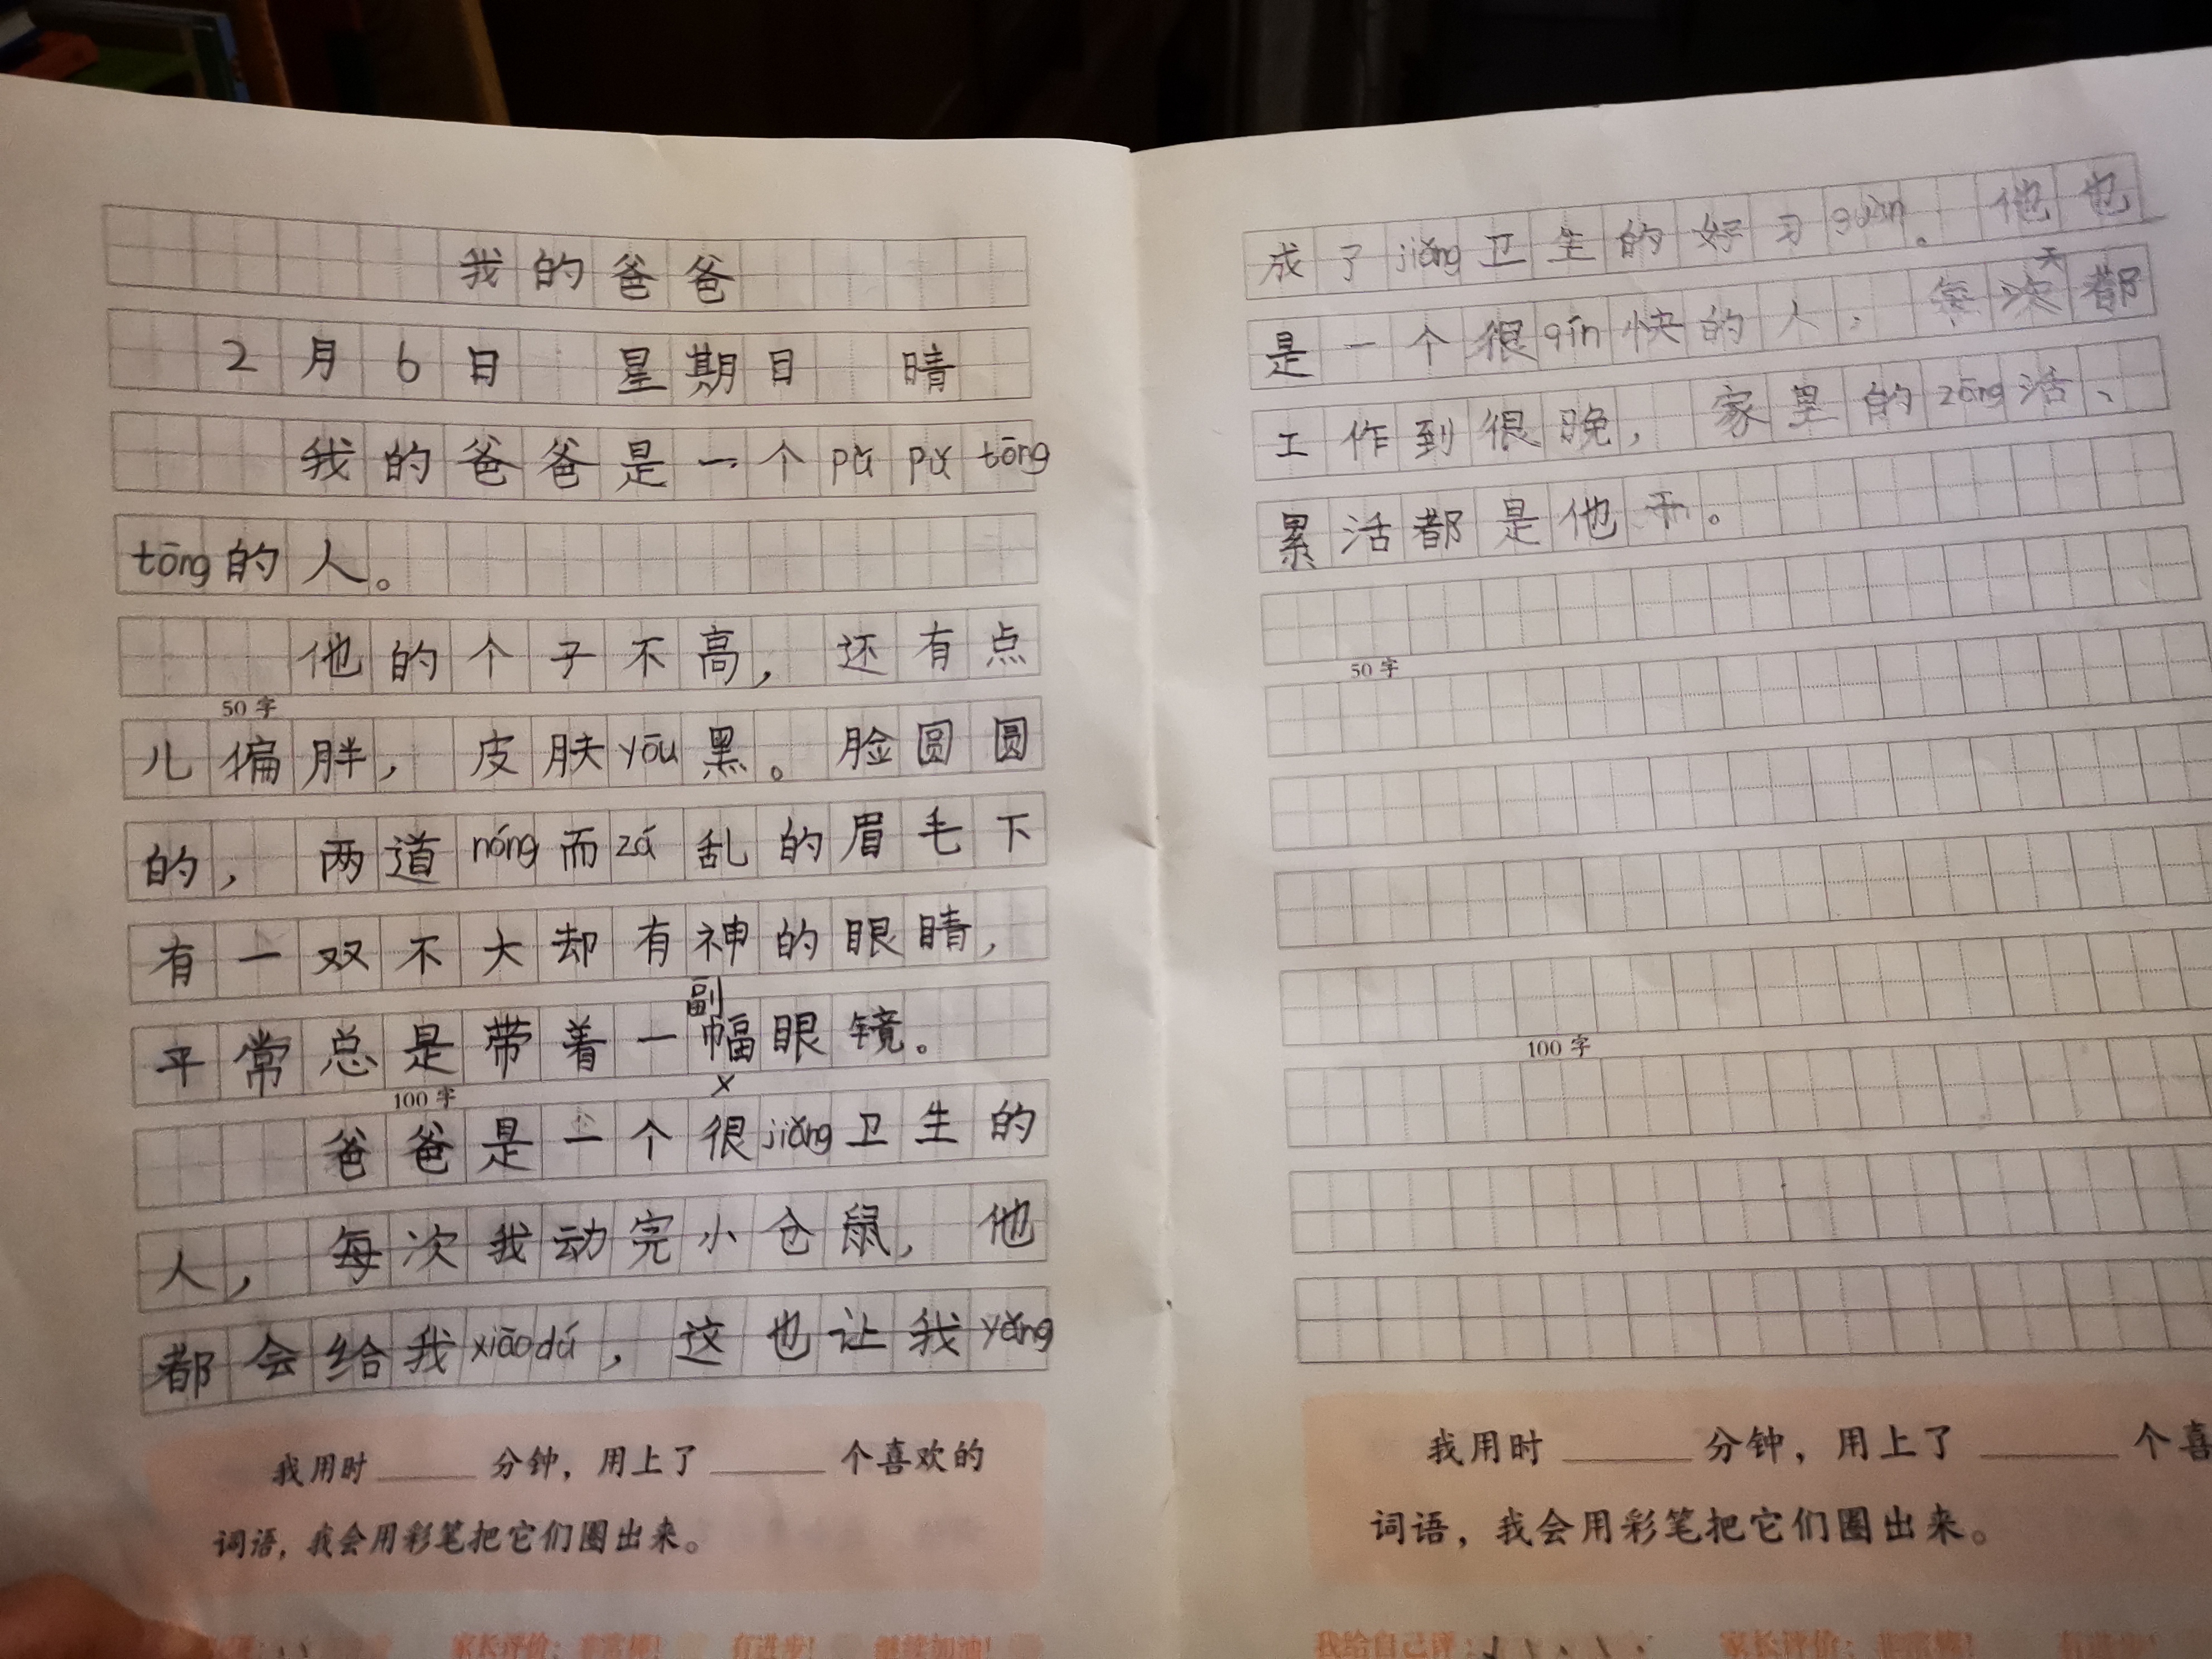 我的爸爸
2月6日 星期日 晴
我的爸爸是一个pǔ pǔ tōng
tōng的人。
他的个子不高，还有点
50字
儿偏胖，皮肤yōu黑。脸圆圆
的，两道nóng而zá乱的眉毛下
有一双不大却有神的眼睛，
副
平常总是带着一幅眼镜。
×
100字
爸爸是一个很jiǎng卫生的
人，每次我动完小仓鼠，他
都会给我xiāo dú，这也让我yǎng
我用时 分钟，用上了 个喜欢的
词语，我会用彩笔把它们圈出来。
家长评价：非常棒！ 有进步！ 继续加油！
成了jiǎng卫生的好习guàn。他也
天
是一个很qín快的人，每次都
工作到很晚，家里的zāng活、
累活都是他干。
50字
100字
我用时 分钟，用上了 个喜
词语，我会用彩笔把它们圈出来。
我给自己评： 家长评价：非常棒！ 有进步！